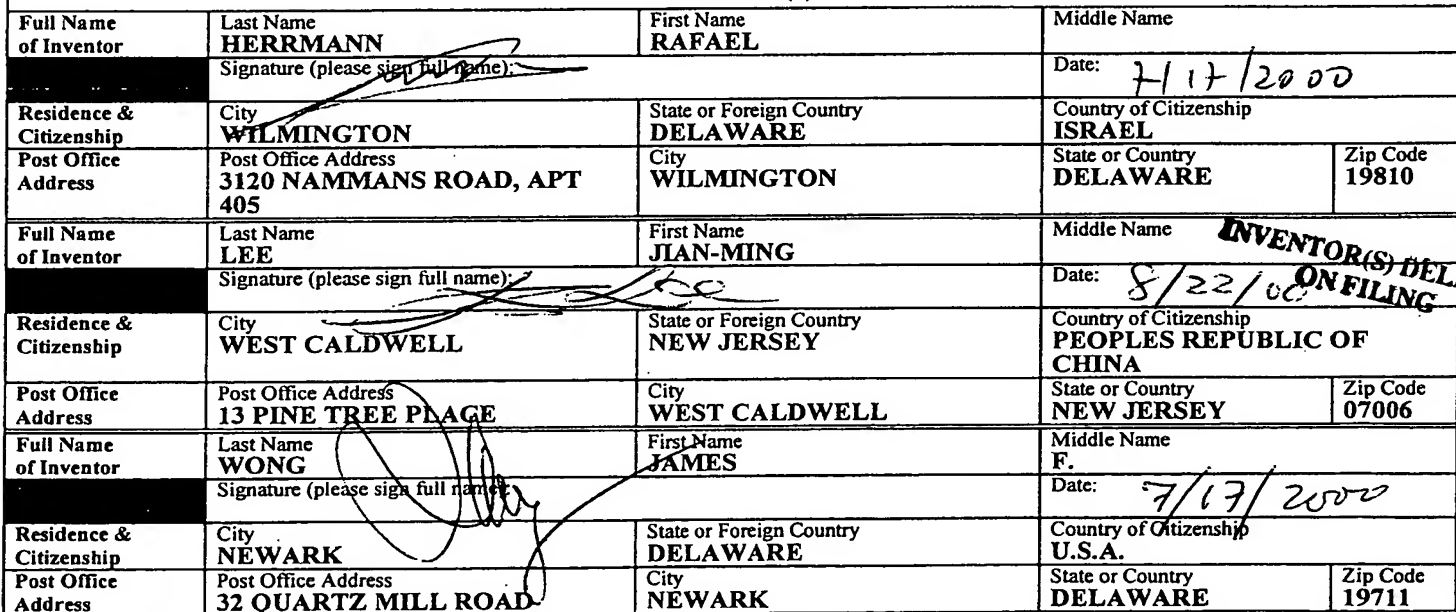 Full Name of Inventor Last Name HERRMANN First Name RAFAEL Middle Name
Signature (please sign full name): Date: 7/17/2000
Residence & Citizenship City WILMINGTON State or Foreign Country DELAWARE Country of Citizenship ISRAEL
Post Office Address Post Office Address 3120 NAMMANS ROAD, APT 405 City WILMINGTON State or Country DELAWARE Zip Code 19810
Full Name of Inventor Last Name LEE First Name JIAN-MING Middle Name
INVENTOR(S) DEL.
ON FILING
Signature (please sign full name): Lee Date: 8/22/00
Residence & Citizenship City WEST CALDWELL State or Foreign Country NEW JERSEY Country of Citizenship PEOPLES REPUBLIC OF CHINA
Post Office Address Post Office Address 13 PINE TREE PLACE City WEST CALDWELL State or Country NEW JERSEY Zip Code 07006
Full Name of Inventor Last Name WONG First Name JAMES Middle Name F.
Signature (please sign full name): Date: 7/17/2000
Residence & Citizenship City NEWARK State or Foreign Country DELAWARE Country of Citizenship U.S.A.
Post Office Address Post Office Address 32 QUARTZ MILL ROAD City NEWARK State or Country DELAWARE Zip Code 19711